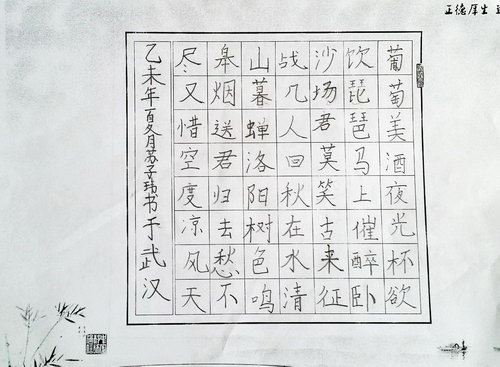 正德厚生
葡萄美酒夜光杯欲
饮琵琶马上催醉卧
沙场君莫笑古来征
战几人回秋在水清
山暮蝉洛阳树色鸣
皋烟送君归去愁不
尽又惜空度凉风天
乙未年百冬月苏子玮书于武汉